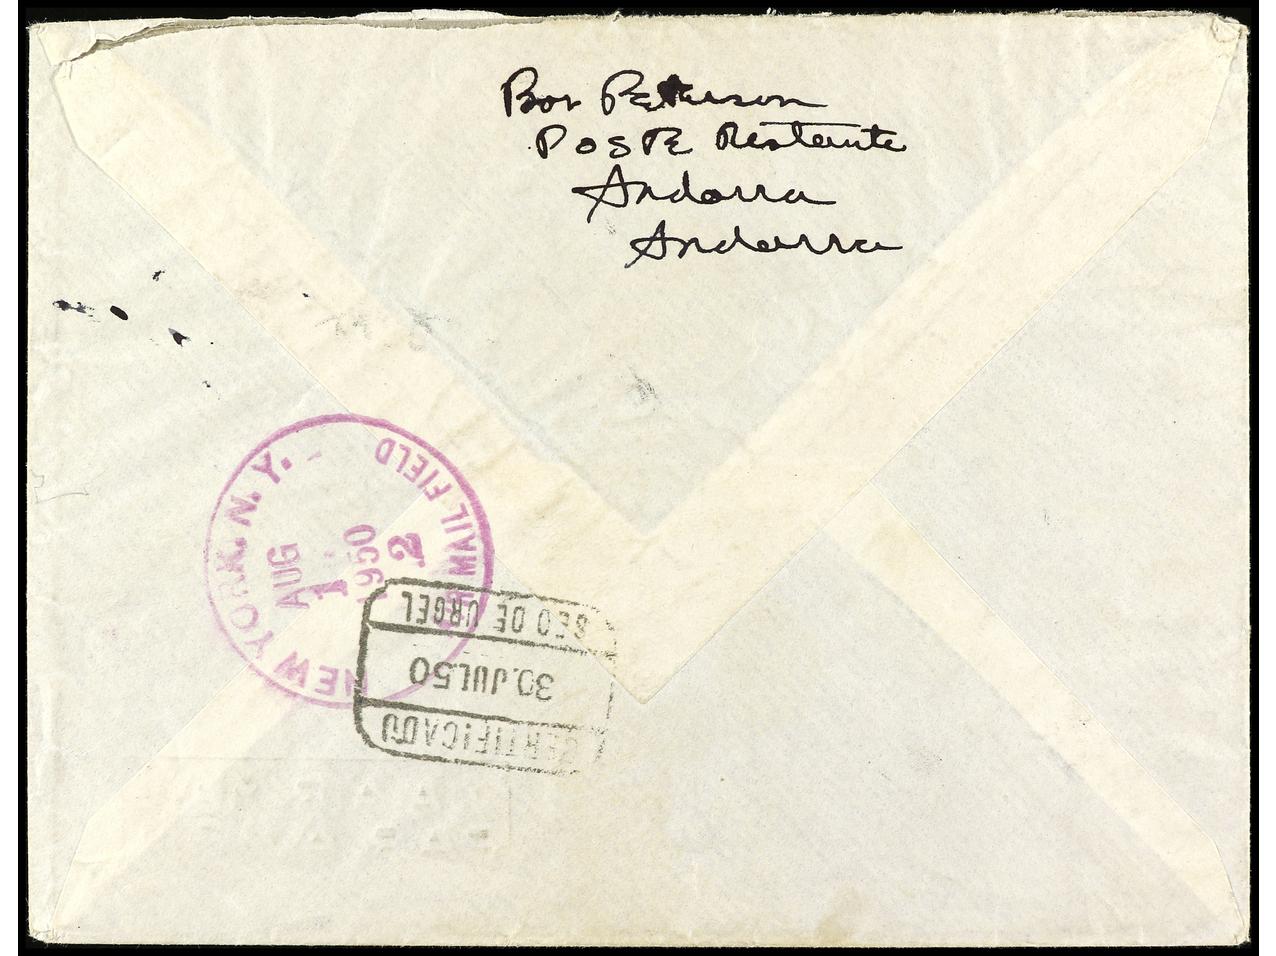 Bob Peterson
Poste Restante
Andorra
Andorra
NEW YORK, N. Y.
AIR MAIL FIELD
AUG
1
1950
2
SEO DE URGEL
30.JUL.50
CERTIFICADO